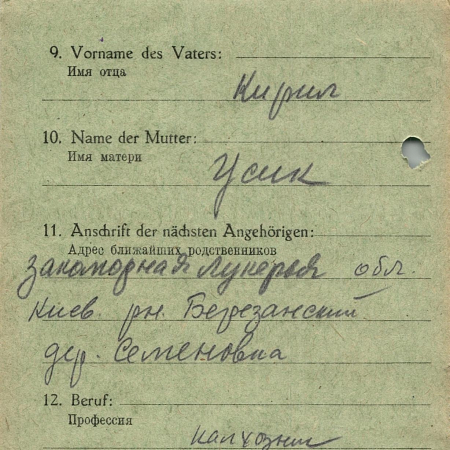 9. Vorname des Vaters:
Имя отца
Кирил
10. Name der Mutter:
Имя матери
Усик
11. Anschrift der nächsten Angehörigen:
Адрес ближайших родственников
Закаморная Лукерья обл.
Киев. рн. Березанский
дер. Семеновка
12. Beruf:
Профессия
калхозник